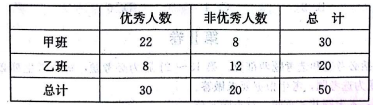 优秀人数 非优秀人数 总 计
甲班 22 8 30
乙班 8 12 20
总计 30 20 50